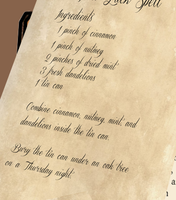 Luck Spell
Ingredients
1 pinch of cinnamon
1 pinch of nutmeg
2 pinches of dried mint
3 fresh dandelions
1 tin can
Combine cinnamon, nutmeg, mint and
dandelions inside the tin can.
Bury the tin can under an oak tree
on a Thursday night.